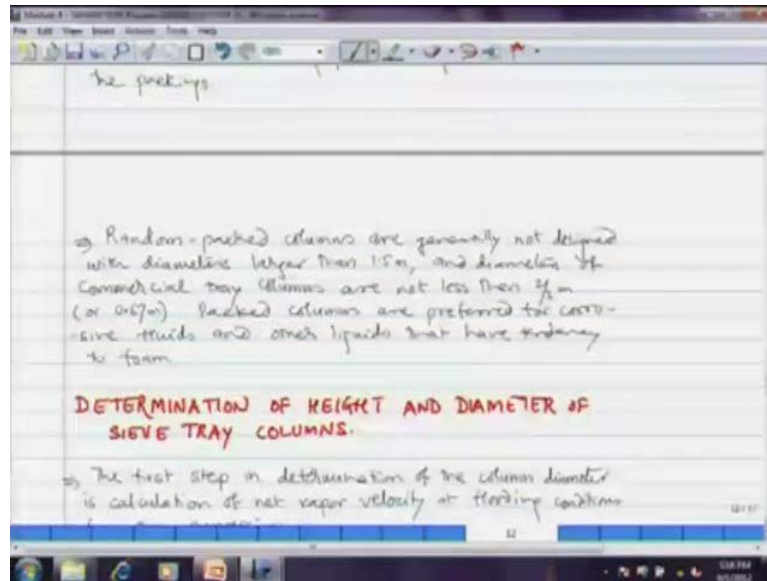 File Edit View Insert Actions Tools Help
the packings
⇒ Random-packed columns are generally not designed
with diameters larger than 1.5m, and diameters of
commercial tray columns are not less than 2/3 m
(or 0.67m) Packed columns are preferred for corro-
-sive fluids and other liquids that have tendency
to foam
DETERMINATION OF HEIGHT AND DIAMETER OF
SIEVE TRAY COLUMNS.
⇒ The first step in determination of the column diameter
is calculation of net vapor velocity at flooding conditions
12